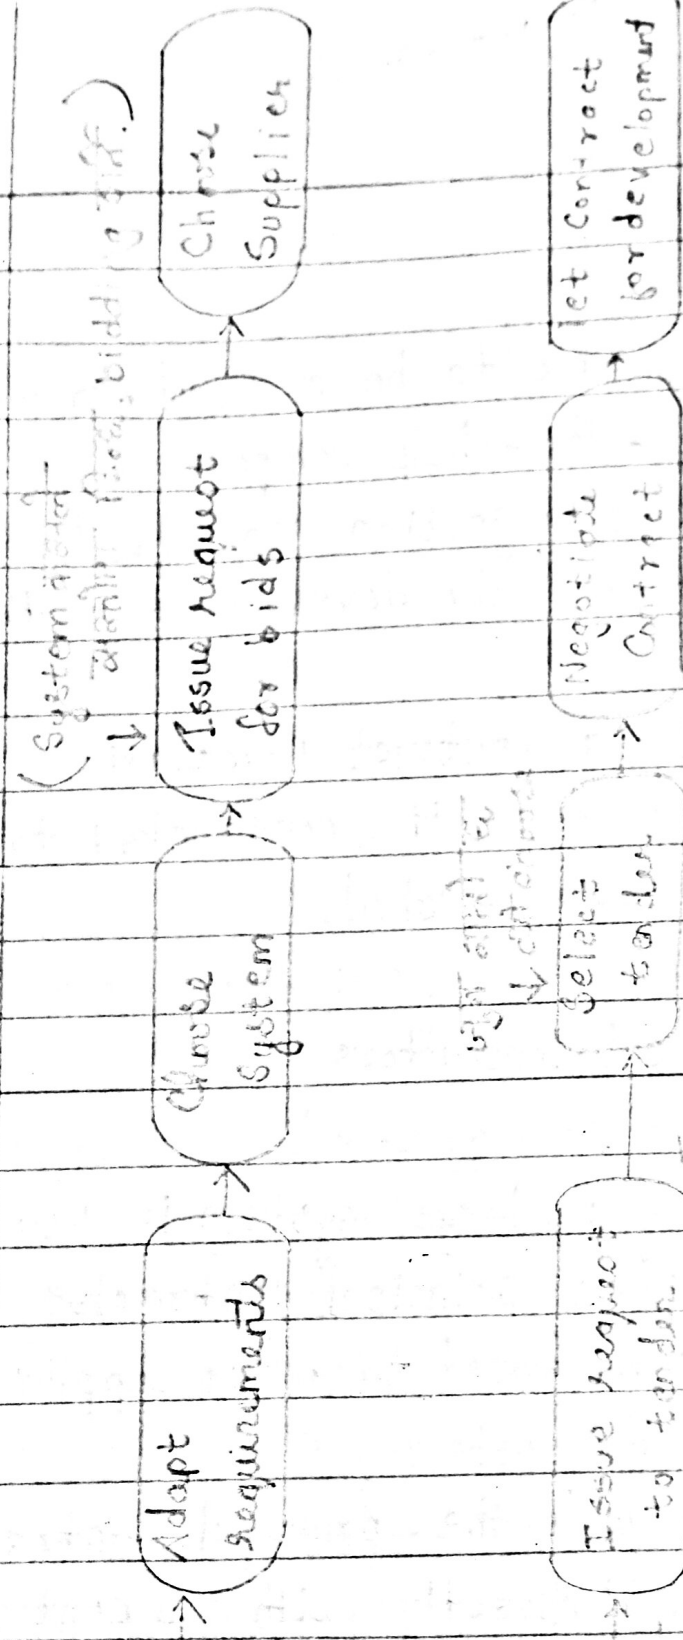 Adapt
requirements
Choose
System
(System
bidding
Issue request
for bids
Choose
Supplier
Issue request
to tender
Select
tender
Negotiate
Contract
let Contract
for development